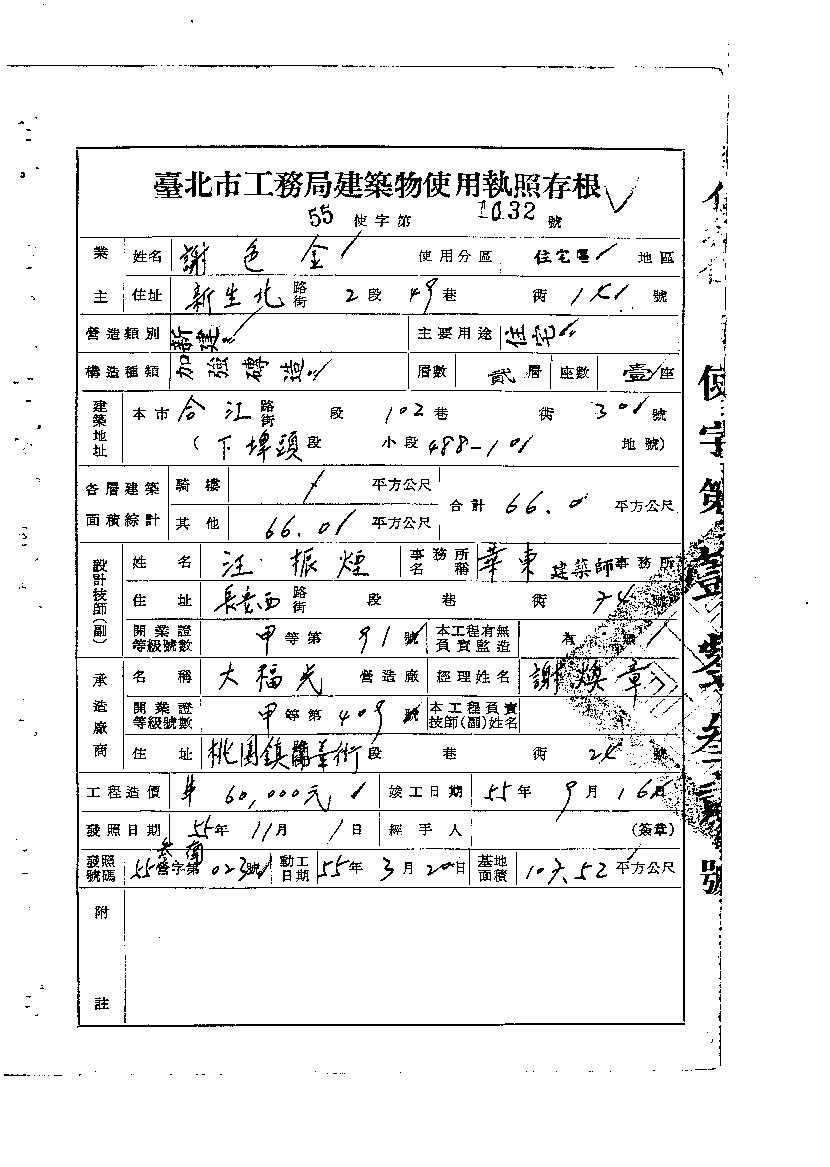 臺北市工務局建築物使用執照存根
55 使字第 1032 號
業主 姓名 謝色金 使用分區 住宅區 地區
住址 新生北路街 2段 49巷 街 號
營造類別 新建 主要用途 住宅
構造種類 加強磚造 層數 貳層 座數 壹座
建築地址 本市合江路街 段 102巷 街 30 號
(下埤頭段 小段 488-10 地號)
各層建築面積綜計 騎樓 / 平方公尺 合計 66.0 平方公尺
其他 66.0 平方公尺
設計技師(副) 姓名 汪振煙 事務所名稱 華東建築師事務所
住址 長安西路街 段 巷 街 74
開業證等級號數 甲等第 91號 本工程有無負責監造 有
承造廠商 名稱 大福光 營造廠 經理姓名 謝煥章
開業證等級號數 甲等第 409號 本工程負責技師(副)姓名
住址 桃園鎮 段 巷 街 24 號
工程造價 $ 60,000元 竣工日期 55年 9月 16日
發照日期 55年 11月 1日 經手人 (簽章)
發照號碼 55營字第 023號 動工日期 55年 3月 20日 基地面積 107.52 平方公尺
附註
使字第壹 號